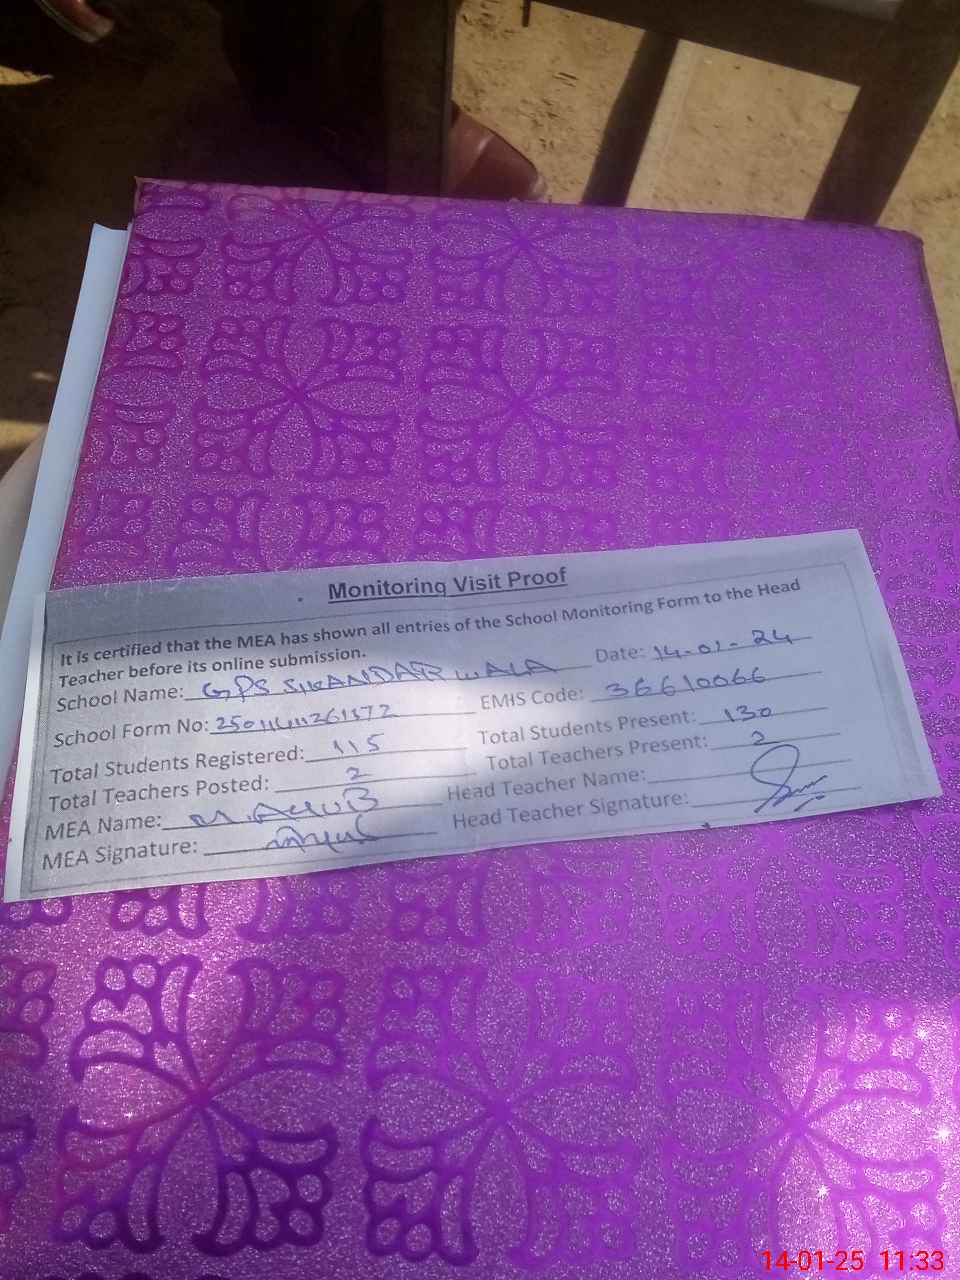 Monitoring Visit Proof
It is certified that the MEA has shown all entries of the School Monitoring Form to the Head
Teacher before its online submission.
School Name: GPS SIKANDAR WALA Date: 14-01-24
School Form No: EMIS Code: 36610066
Total Students Registered: 115 Total Students Present: 130
Total Teachers Posted: 2 Total Teachers Present: 2
MEA Name: M. AYUB Head Teacher Name:
MEA Signature: Head Teacher Signature:
14-01-25 11:33